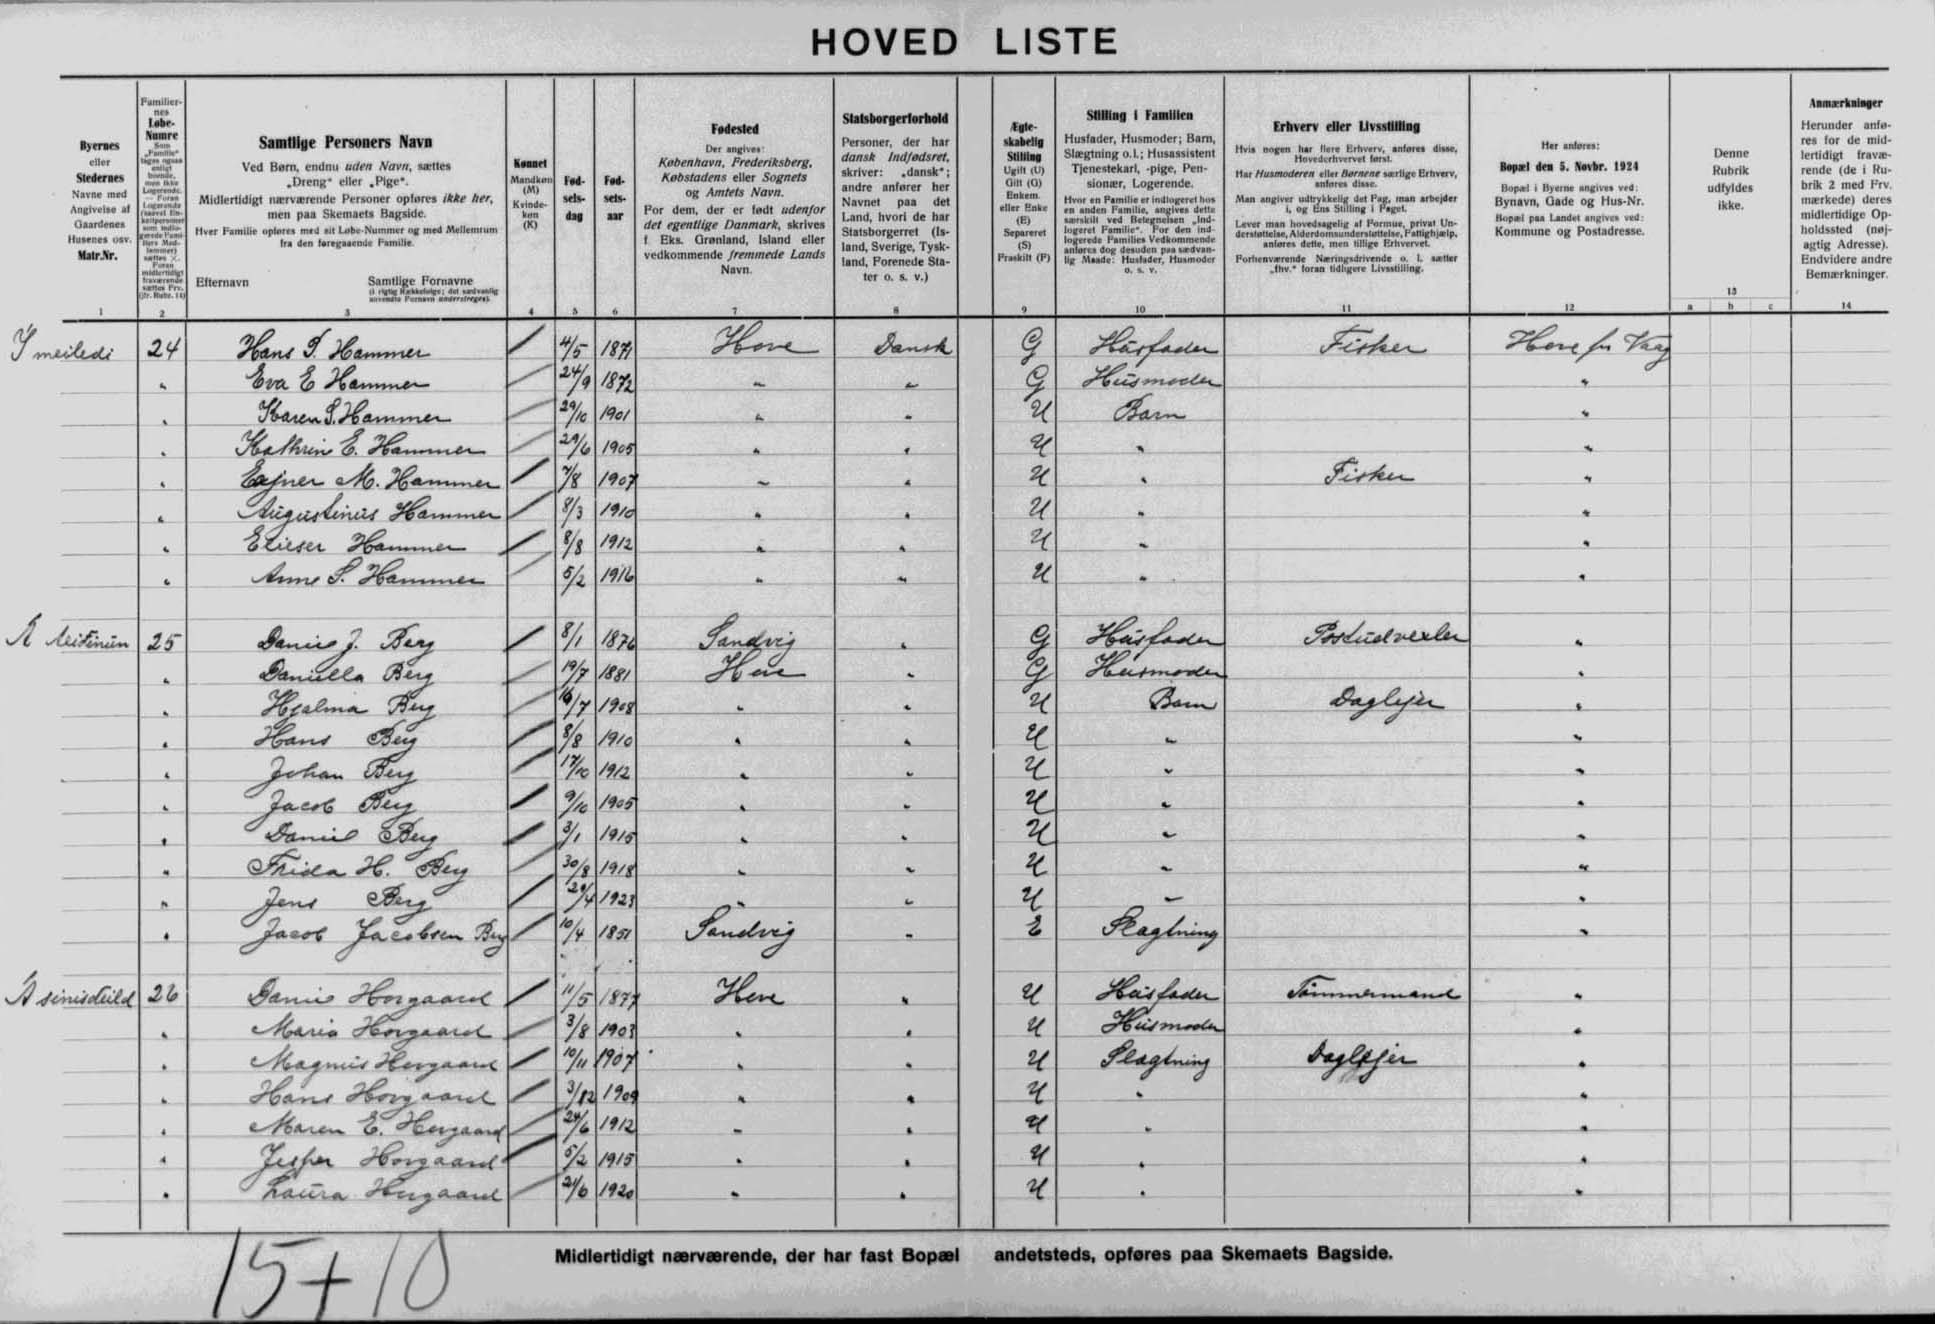 HOVED LISTE
Byernes
eller
Stedernes
Navne med
Angivelse af
Gaardenes
Husenes osv.
Matr.Nr.
1
Familier-
nes
Løbe-
Numre
2
Samtlige Personers Navn
Ved Børn, endnu uden Navn, sættes
„Dreng“ eller „Pige“.
Midlertidigt nærværende Personer opføres ikke her,
men paa Skemaets Bagside.
Hver Familie opføres med sit Løbe-Nummer og med Mellemrum
fra den foregaaende Familie.
Efternavn Samtlige Fornavne
(i rigtig Rækkefølge; det sædvanlig
anvendte Fornavn understreges).
3
Kønnet
Mandkøn
(M)
Kvinde-
køn
(K)
4
Fød-
sels-
dag
5
Fød-
sels-
aar
6
Fødested
Der angives:
København, Frederiksberg,
Købstadens eller Sognets
og Amtets Navn.
For dem, der er født udenfor
det egentlige Danmark, skrives
f. Eks. Grønland, Island eller
vedkommende fremmede Lands
Navn.
7
Statsborgerforhold
Personer, der har
dansk Indfødsret,
skriver: „dansk“;
andre anfører her
Navnet paa det
Land, hvori de har
Statsborgerret (Is-
land, Sverige, Tysk-
land, Forenede Sta-
ter o. s. v.)
8
Ægte-
skabelig
Stilling
Ugift (U)
Gift (G)
Enkem.
eller Enke
(E)
Separeret
(S)
Fraskilt (F)
9
Stilling i Familien
Husfader, Husmoder; Barn,
Slægtning o.l.; Husassistent
Tjenestekarl, -pige, Pen-
sionær, Logerende.
Hvor en Familie er indlogeret hos
en anden Familie, angives dette
særskilt ved Betegnelsen „Ind-
logeret Familie“. For den ind-
logerede Families Vedkommende
anføres dog desuden paa sædvan-
lig Maade: Husfader, Husmoder
o. s. v.
10
Erhverv eller Livsstilling
Hvis nogen har flere Erhverv, anføres disse,
Hovederhvervet først.
Har Husmoderen eller Børnene særlige Erhverv,
anføres disse.
Man angiver udtrykkelig det Fag, man arbejder
i, og Ens Stilling i Faget.
Lever man hovedsagelig af Formue, privat Un-
derstøttelse, Alderdomsunderstøttelse, Fattighjælp,
anføres dette, men tillige Erhvervet.
Forhenværende Næringsdrivende o. l. sætter
„fhv.“ foran tidligere Livsstilling.
11
Her anføres:
Bopæl den 5. Novbr. 1924
Bopæl i Byerne angives ved:
Bynavn, Gade og Hus-Nr.
Bopæl paa Landet angives ved:
Kommune og Postadresse.
12
Denne
Rubrik
udfyldes
ikke.
13
a b c
Anmærkninger
Herunder anfø-
res for de mid-
lertidigt fravæ-
rende (de i Ru-
brik 2 med Frv.
mærkede) deres
midlertidige Op-
holdssted (nøj-
agtig Adresse).
Endvidere andre
Bemærkninger.
14
24 Hans S. Hammer / 4/5 1871 Hove Dansk G Husfader Fisker Hove pr Vaag
" Eva E Hammer / 24/9 1872 " " G Husmoder "
" Karen S. Hammer / 29/10 1901 " " U Barn "
" Kathrine E. Hammer / 29/6 1905 " " U " "
" Ejner M. Hammer / 7/8 1907 " " U " Fisker "
" Augustinus Hammer / 8/3 1910 " " U " "
" Elieser Hammer / 8/8 1912 " " U " "
" Anne S. Hammer / 5/2 1916 " " U " "
25 J. Berg / 8/1 1876 Sandvig " G Husfader Postudvexler "
" Daniella Berg / 19/7 1881 Hove " G Husmoder "
" Hjalma Berg / 16/7 1908 " " U Barn Daglejer "
" Hans Berg / 8/8 1910 " " U " "
" Johan Berg / 17/10 1912 " " U " "
" Jacob Berg / 9/10 1905 " " U " "
" Daniel Berg / 3/1 1915 " " U " "
" Frida H. Berg / 30/8 1918 " " U " "
" Jens Berg / 29/4 1923 " " U " "
" Jacob Jacobsen Berg / 10/4 1851 Sandvig " E Slagtning "
26 Hovgaard / 11/5 1877 Hove " U Husfader Tömmermand "
" Maria Hovgaard / 3/8 1903 " " U Husmoder "
" Magnus Hovgaard / 10/11 1907 " " U Slagtning Daglejer "
" Hans Hovgaard / 3/12 1909 " " U " "
" Maren E. Hovgaard / 24/6 1912 " " U " "
" Jesper Hovgaard / 5/2 1915 " " U " "
" Laura Hovgaard / 21/6 1920 " " U " "
Midlertidigt nærværende, der har fast Bopæl andetsteds, opføres paa Skemaets Bagside.
15+10